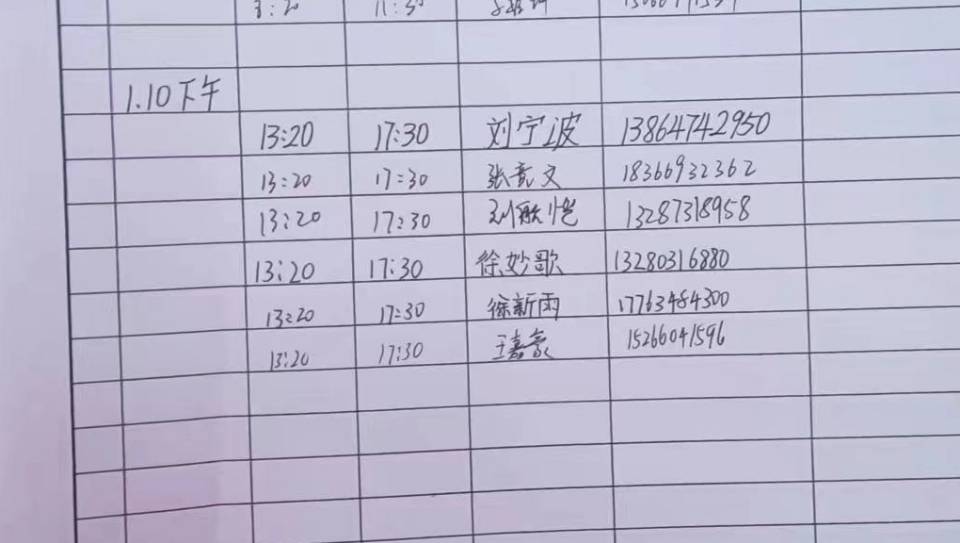 1.10下午
13:20 17:30 刘宁波 13864742950
13:20 17:30 张竞文 18366932362
13:20 17:30 刘 13287318958
13:20 17:30 徐妙歌 13280316880
13:20 17:30 徐新雨 17763484300
13:20 17:30 王嘉豪 15266041596